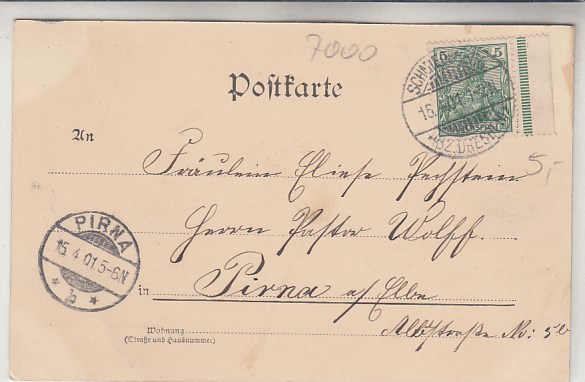 7000
Postkarte
5
SCHMIEDEBERG
15. 4. 01.
*(BZ. DRESD.
5,-
An
Fräulein Eliese Pechstein
Herrn Pastor Wolff.
PIRNA
15. 4. 01. 5-6N.
* b *
in Pirna a/Elbe
Wohnung
(Straße und Hausnummer)
Albstraße No: 5b